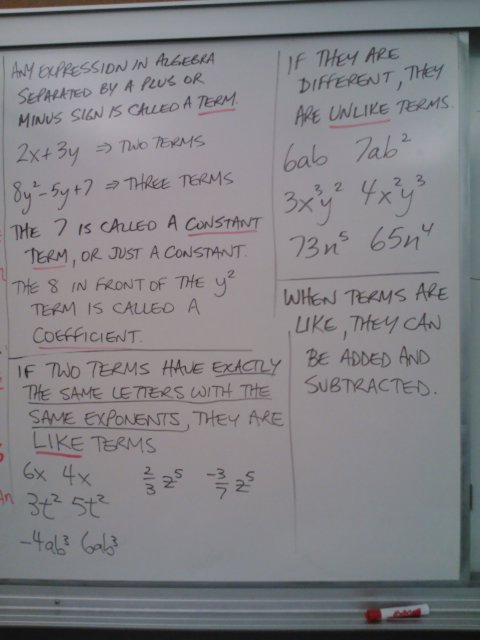 ANY EXPRESSION IN ALGEBRA
SEPARATED BY A PLUS OR
MINUS SIGN IS CALLED A TERM.
2x+3y ⇒ TWO TERMS
8y²-5y+7 ⇒ THREE TERMS
THE 7 IS CALLED A CONSTANT
TERM, OR JUST A CONSTANT.
THE 8 IN FRONT OF THE y²
TERM IS CALLED A
COEFFICIENT.
IF TWO TERMS HAVE EXACTLY
THE SAME LETTERS WITH THE
SAME EXPONENTS, THEY ARE
LIKE TERMS
6x 4x
3t² 5t²
-4ab³ 6ab³
2/3 z⁵ -3/7 z⁵
IF THEY ARE
DIFFERENT, THEY
ARE UNLIKE TERMS.
6ab 7ab²
3x³y² 4x²y³
73n⁵ 65n⁴
WHEN TERMS ARE
LIKE, THEY CAN
BE ADDED AND
SUBTRACTED.